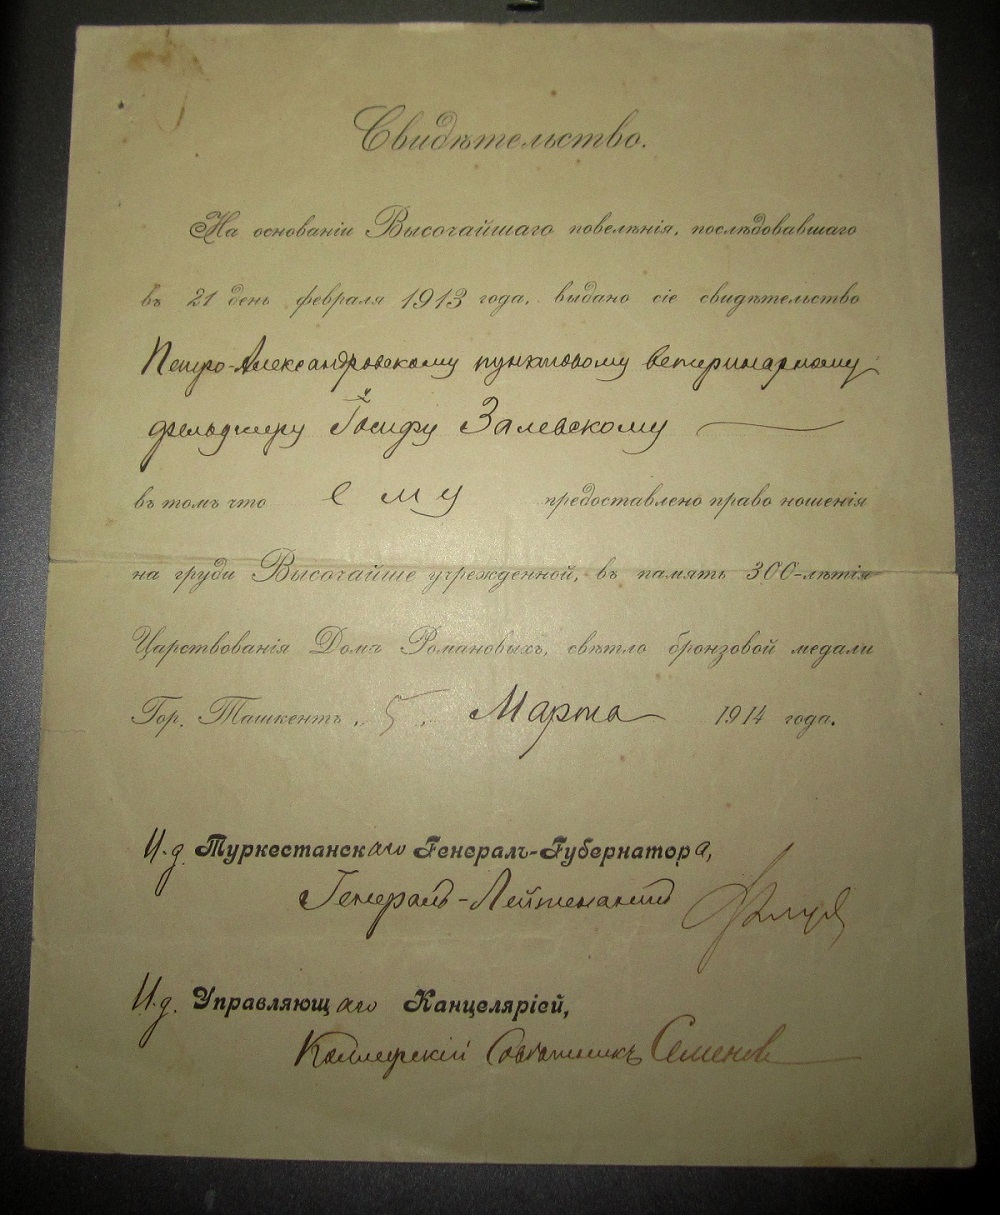 Свидѣтельство.
На основаніи Высочайшаго повелѣнія, послѣдовавшаго
въ 21 день февраля 1913 года, выдано сіе свидѣтельство
Петро-Александровскому пунктовому ветеринарному
фельдшеру Іосифу Залевскому
въ томъ что ему предоставлено право ношенія
на груди Высочайше учрежденной, въ память 300-лѣтія
Царствованія Дома Романовыхъ, свѣтло бронзовой медали
Гор. Ташкентъ „ 5 „ Марта 1914 года.
И.д. Туркестанскаго Генералъ-Губернатора,
Генералъ-Лейтенантъ
И.д. Управляющаго Канцеляріей,
Коллежскій Совѣтникъ Семенов